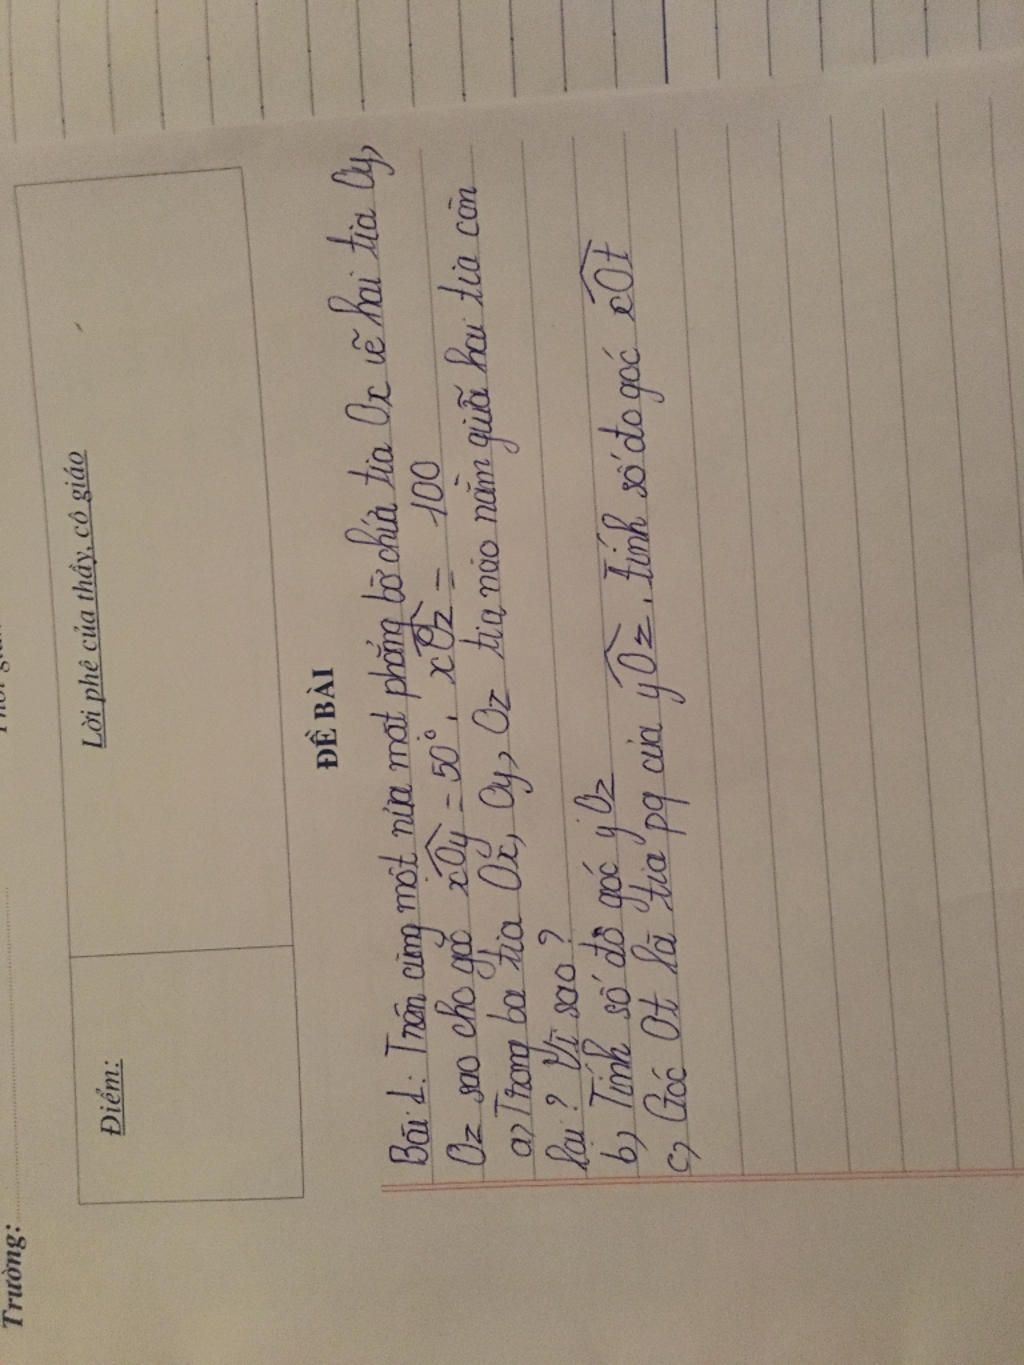 Trường:
Điểm:
Lời phê của thầy, cô giáo
ĐỀ BÀI
Bài 1: Trên cùng một nửa mặt phẳng bờ chứa tia Ox vẽ hai tia Oy,
Oz sao cho góc xOy = 50°, xOz = 100
a, Trong ba tia Ox, Oy, Oz tia nào nằm giữa hai tia còn
lại? Vì sao?
b, Tính số đo góc yOz
c, Góc Ot là tia pg của yOz. Tính số đo góc xOt